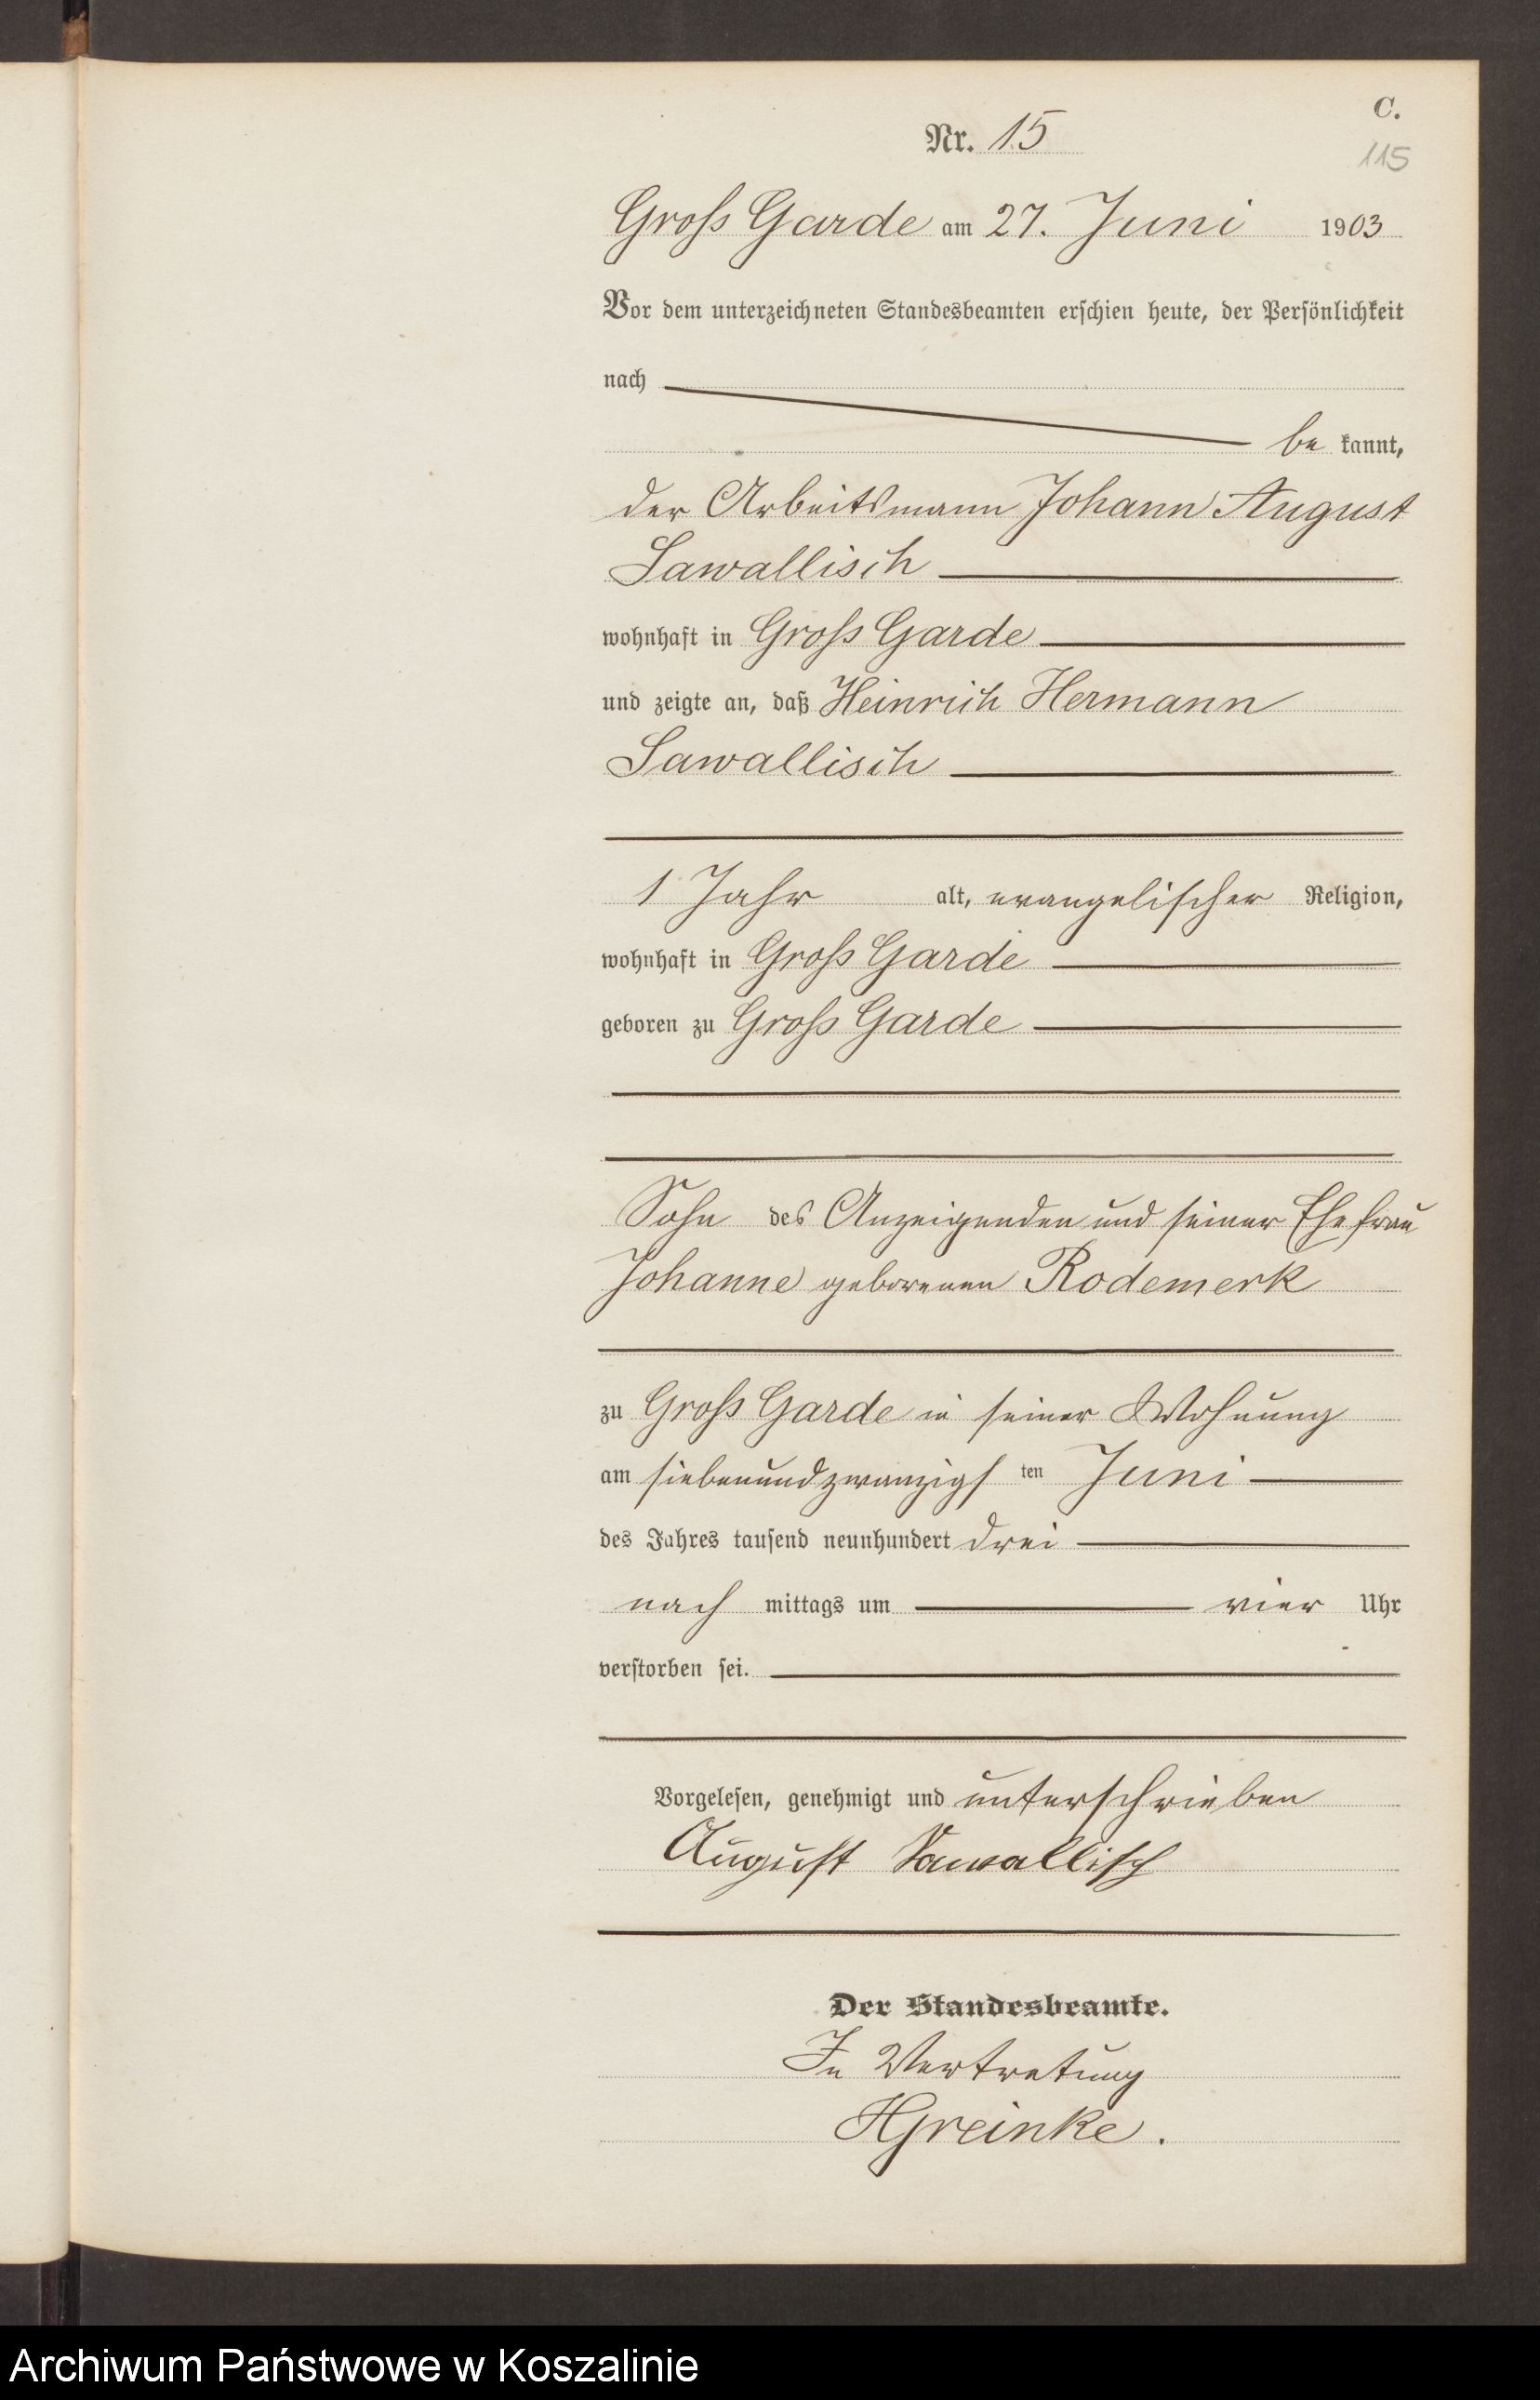 C.
Nr. 15
115
Groß Garde am 27. Juni 1903
Vor dem unterzeichneten Standesbeamten erschien heute, der Persönlichkeit
nach
be kannt,
der Arbeitsmann Johann August
Sawallisch
wohnhaft in Groß Garde
und zeigte an, daß Heinrich Hermann
Sawallisch
1 Jahr alt, evangelischer Religion,
wohnhaft in Groß Garde
geboren zu Groß Garde
Sohn des Anzeigenden und seiner Ehefrau
Johanne geborenen Rodemerk
zu Groß Garde in seiner Wohnung
am siebenundzwanzigs ten Juni
des Jahres tausend neunhundert drei
nach mittags um vier Uhr
verstorben sei.
Vorgelesen, genehmigt und unterschrieben
August Sawallisch
Der Standesbeamte.
In Vertretung
HGreinke.
Archiwum Państwowe w Koszalinie